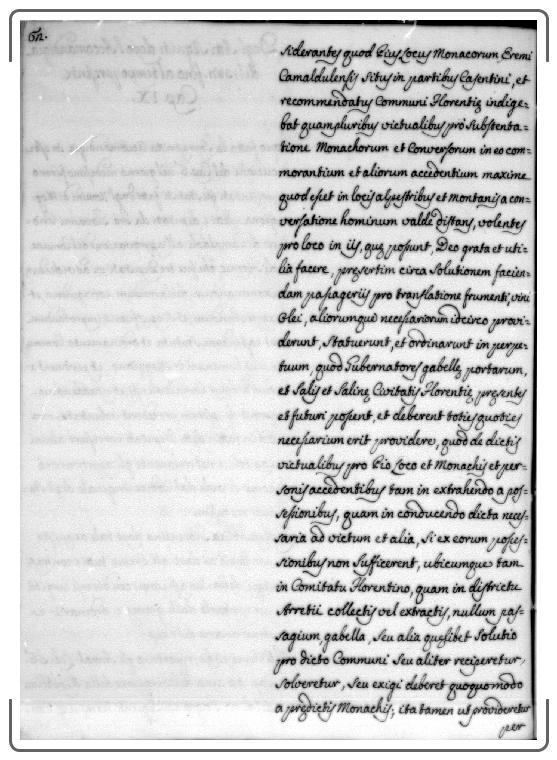 612.
siderantes quod Pius Locus Monacorum Eremi
Camaldulensis situs in partibus Casentini, et
recommendatus Communi Florentię indige-
bat quampluribus victualibus pro substenta-
tione Monachorum et Conversorum in eo com-
morantium et aliorum accedentium maxime
quod esset in locis alpestribus et montanis a con-
versatione hominum valde distans, volentes
pro loco in iis, quę possunt, Deo grata et uti-
lia facere, pręsertim circa solutionem facien-
dam passagerijs pro translatione frumenti, vini
Olei, aliorumque necessariorum idcirco provi-
derunt, statuerunt, et ordinarunt in perpe-
tuum, quod Gubernatores gabellę portarum,
et Salis et Salinę Civitatis Florentię pręsentes
et futuri possent, et deberent toties quoties
necessarium erit providere, quod de dictis
victualibus pro Pio Loco et Monachis et per-
sonis accedentibus tam in extrahendo a pos-
sessionibus, quam in conducendo dicta neces-
saria ad victum et alia, si ex eorum posses-
sionibus non sufficerent, ubicumque tam
in Comitatu Florentino, quam in districtu
Arretii collectis vel extractis, nullum pas-
sagium, gabella, seu alia quęlibet solutio
pro dicto Communi seu aliter reciperetur,
solveretur, seu exigi deberet quoquomodo
a prędictis Monachis; ita tamen ut provideretur
per